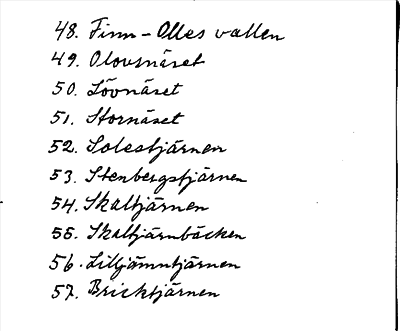 48. Finn-Olles vallen
49. Olovsnäset
50. Lövnäset
51. Stornäset
52. Solestjärnen
53. Stenbergstjärnen
54. Skaltjärnen
55. Skaltjärnbäcken
56. Lilljämntjärnen
57. Bricktjärnen